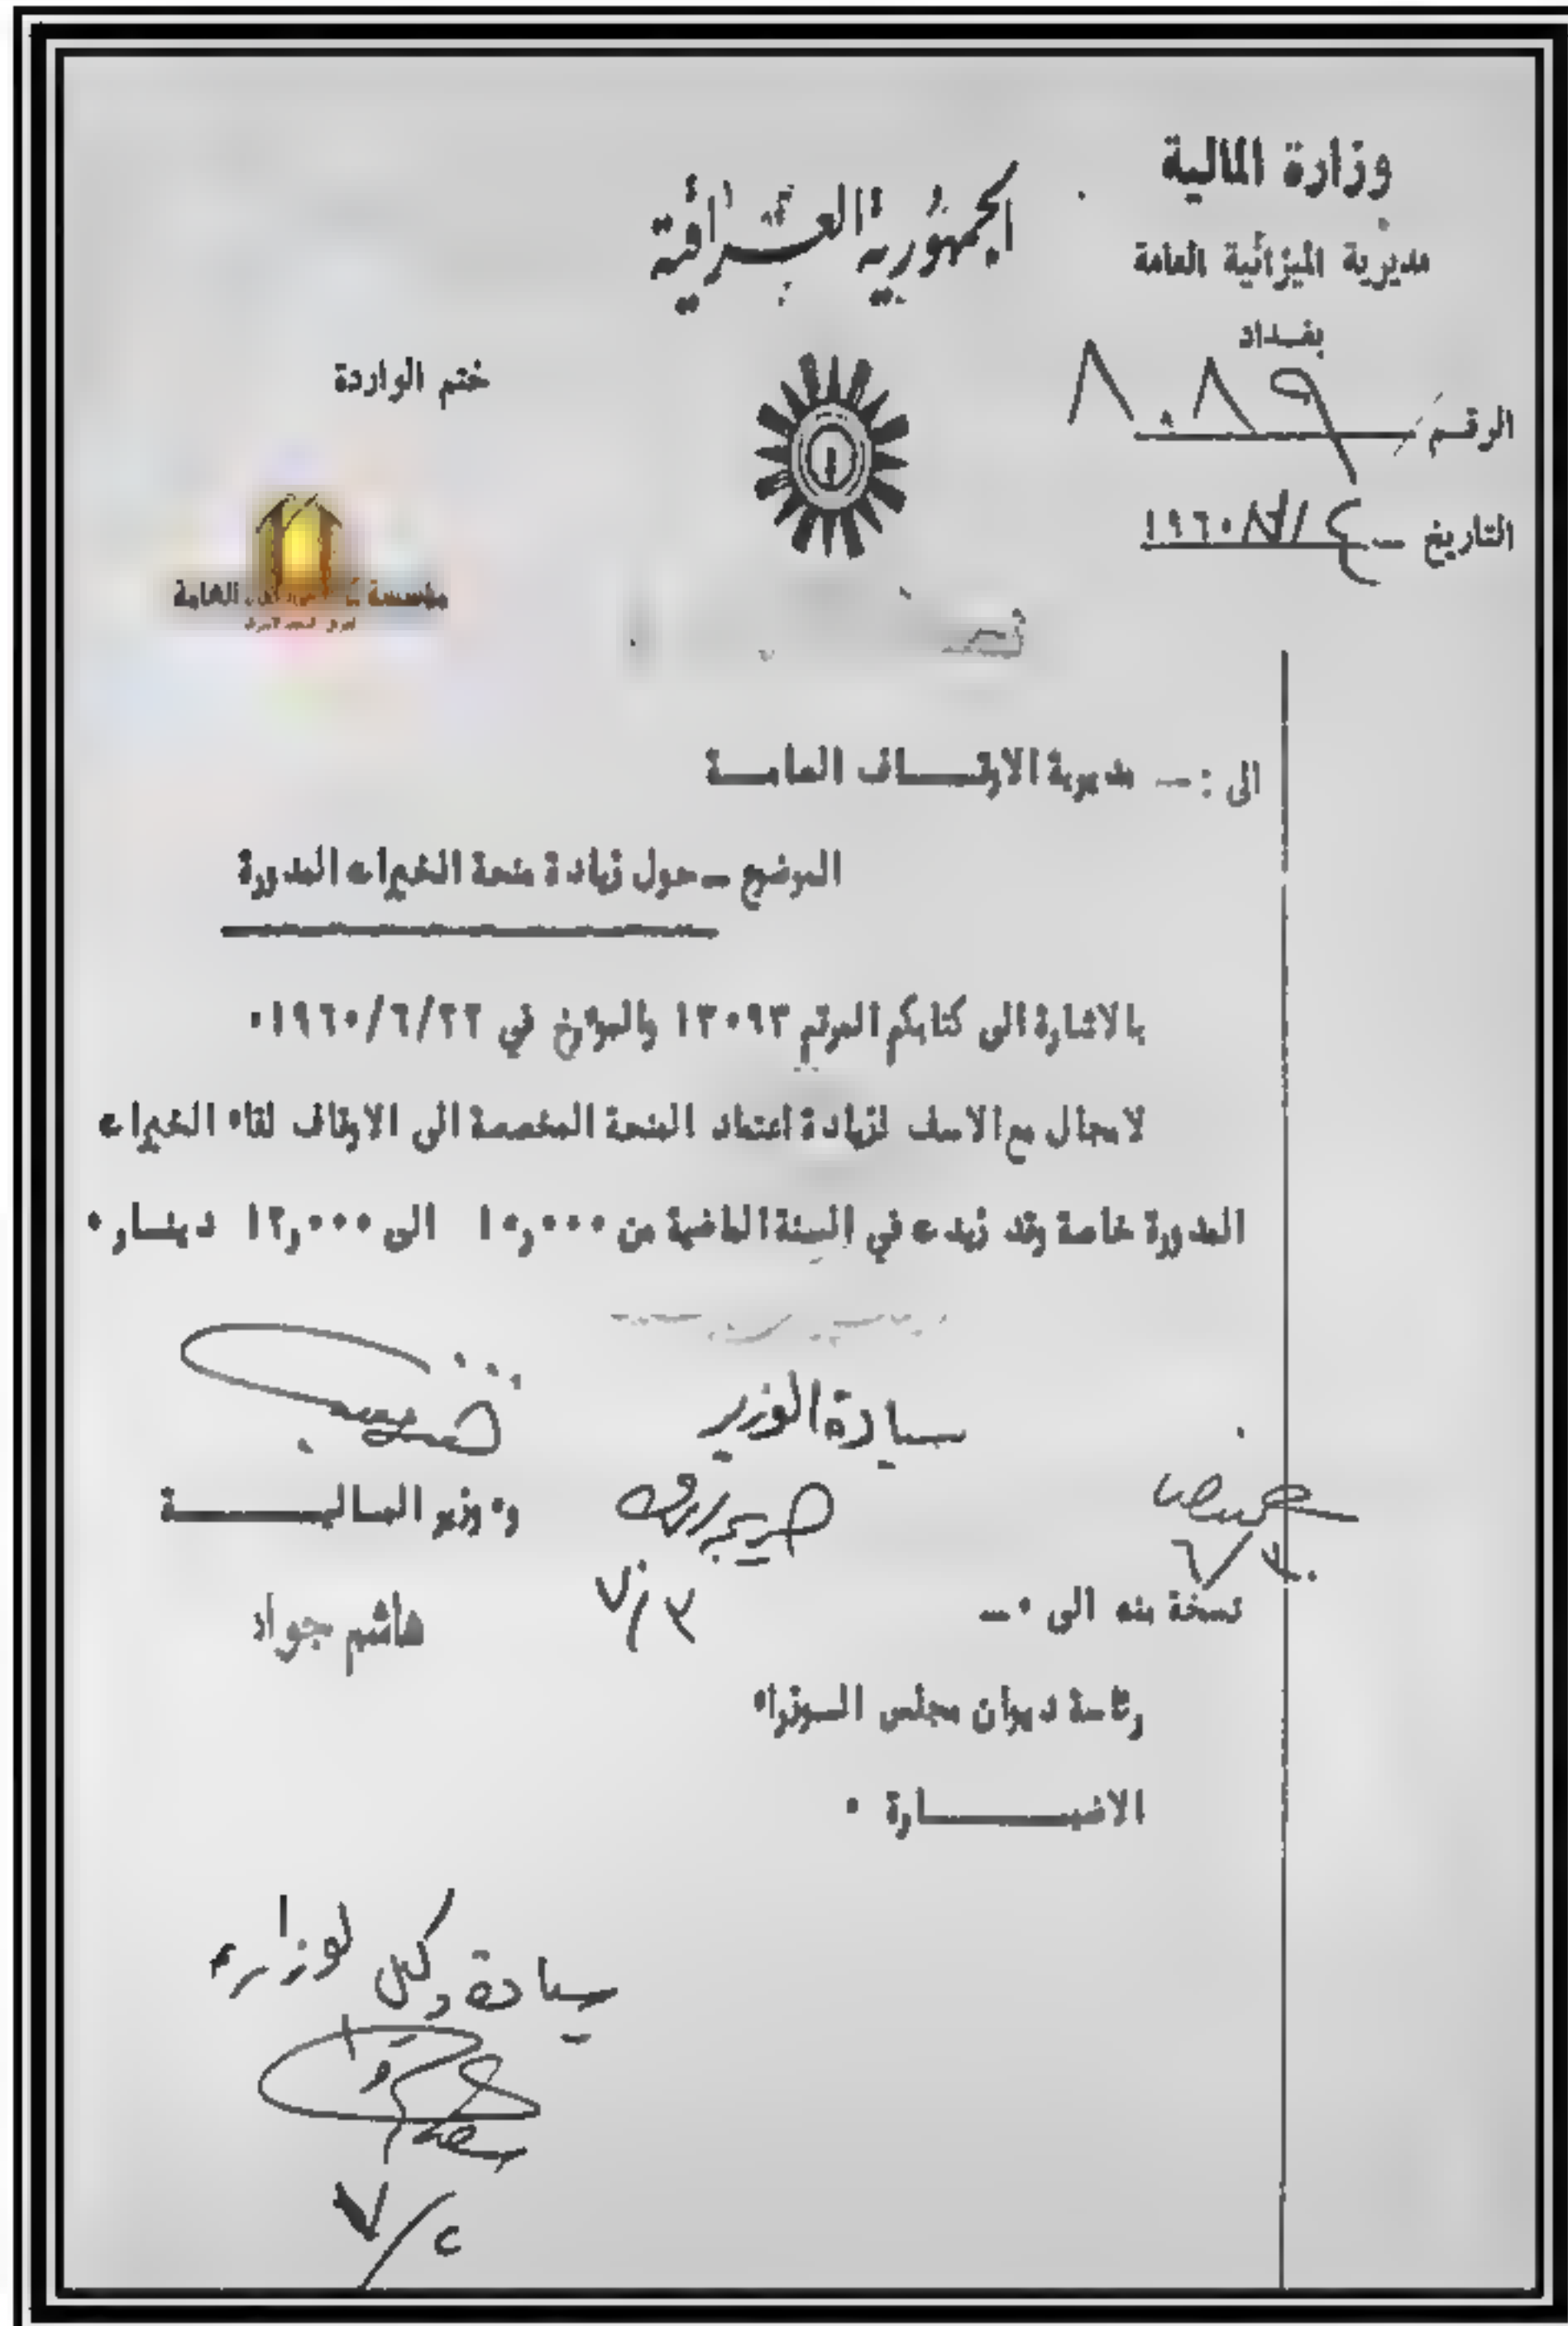 وزارة المالية
الجمهورية العراقية
مديرية الميزانية العامة
بغداد
ختم الواردة
الرقم ٨٠٨٩
التاريخ ٤/٧/١٩٦٠
مؤسسة العامة
الى :ـ مديرية الاوقـــاف العامــة
الموضوع ـ حول زيادة منحة الخيرات المدورة
بالاشارة الى كتابكم المرقم ١٣٠٩٣ والمؤرخ في ٢٢/٦/١٩٦٠٠
لا مجال مع الاسف لزيادة اعتماد المنحة المخصصة الى الاوقاف لقاء الخيرات
المدورة خاصة وقد زيدت في السنة الماضية من ١٠,٠٠٠ الى ١٢,٠٠٠ دينـار ٠
سيادة الوزير
و٠ وزير الماليــــة
٧/٢
هاشم جواد
نسخة منه الى ٠ـ
رئاسة ديوان مجلس الـوزراء
الاضبـــــارة ٠
سيادة وكيل الوزراء
٧/٢